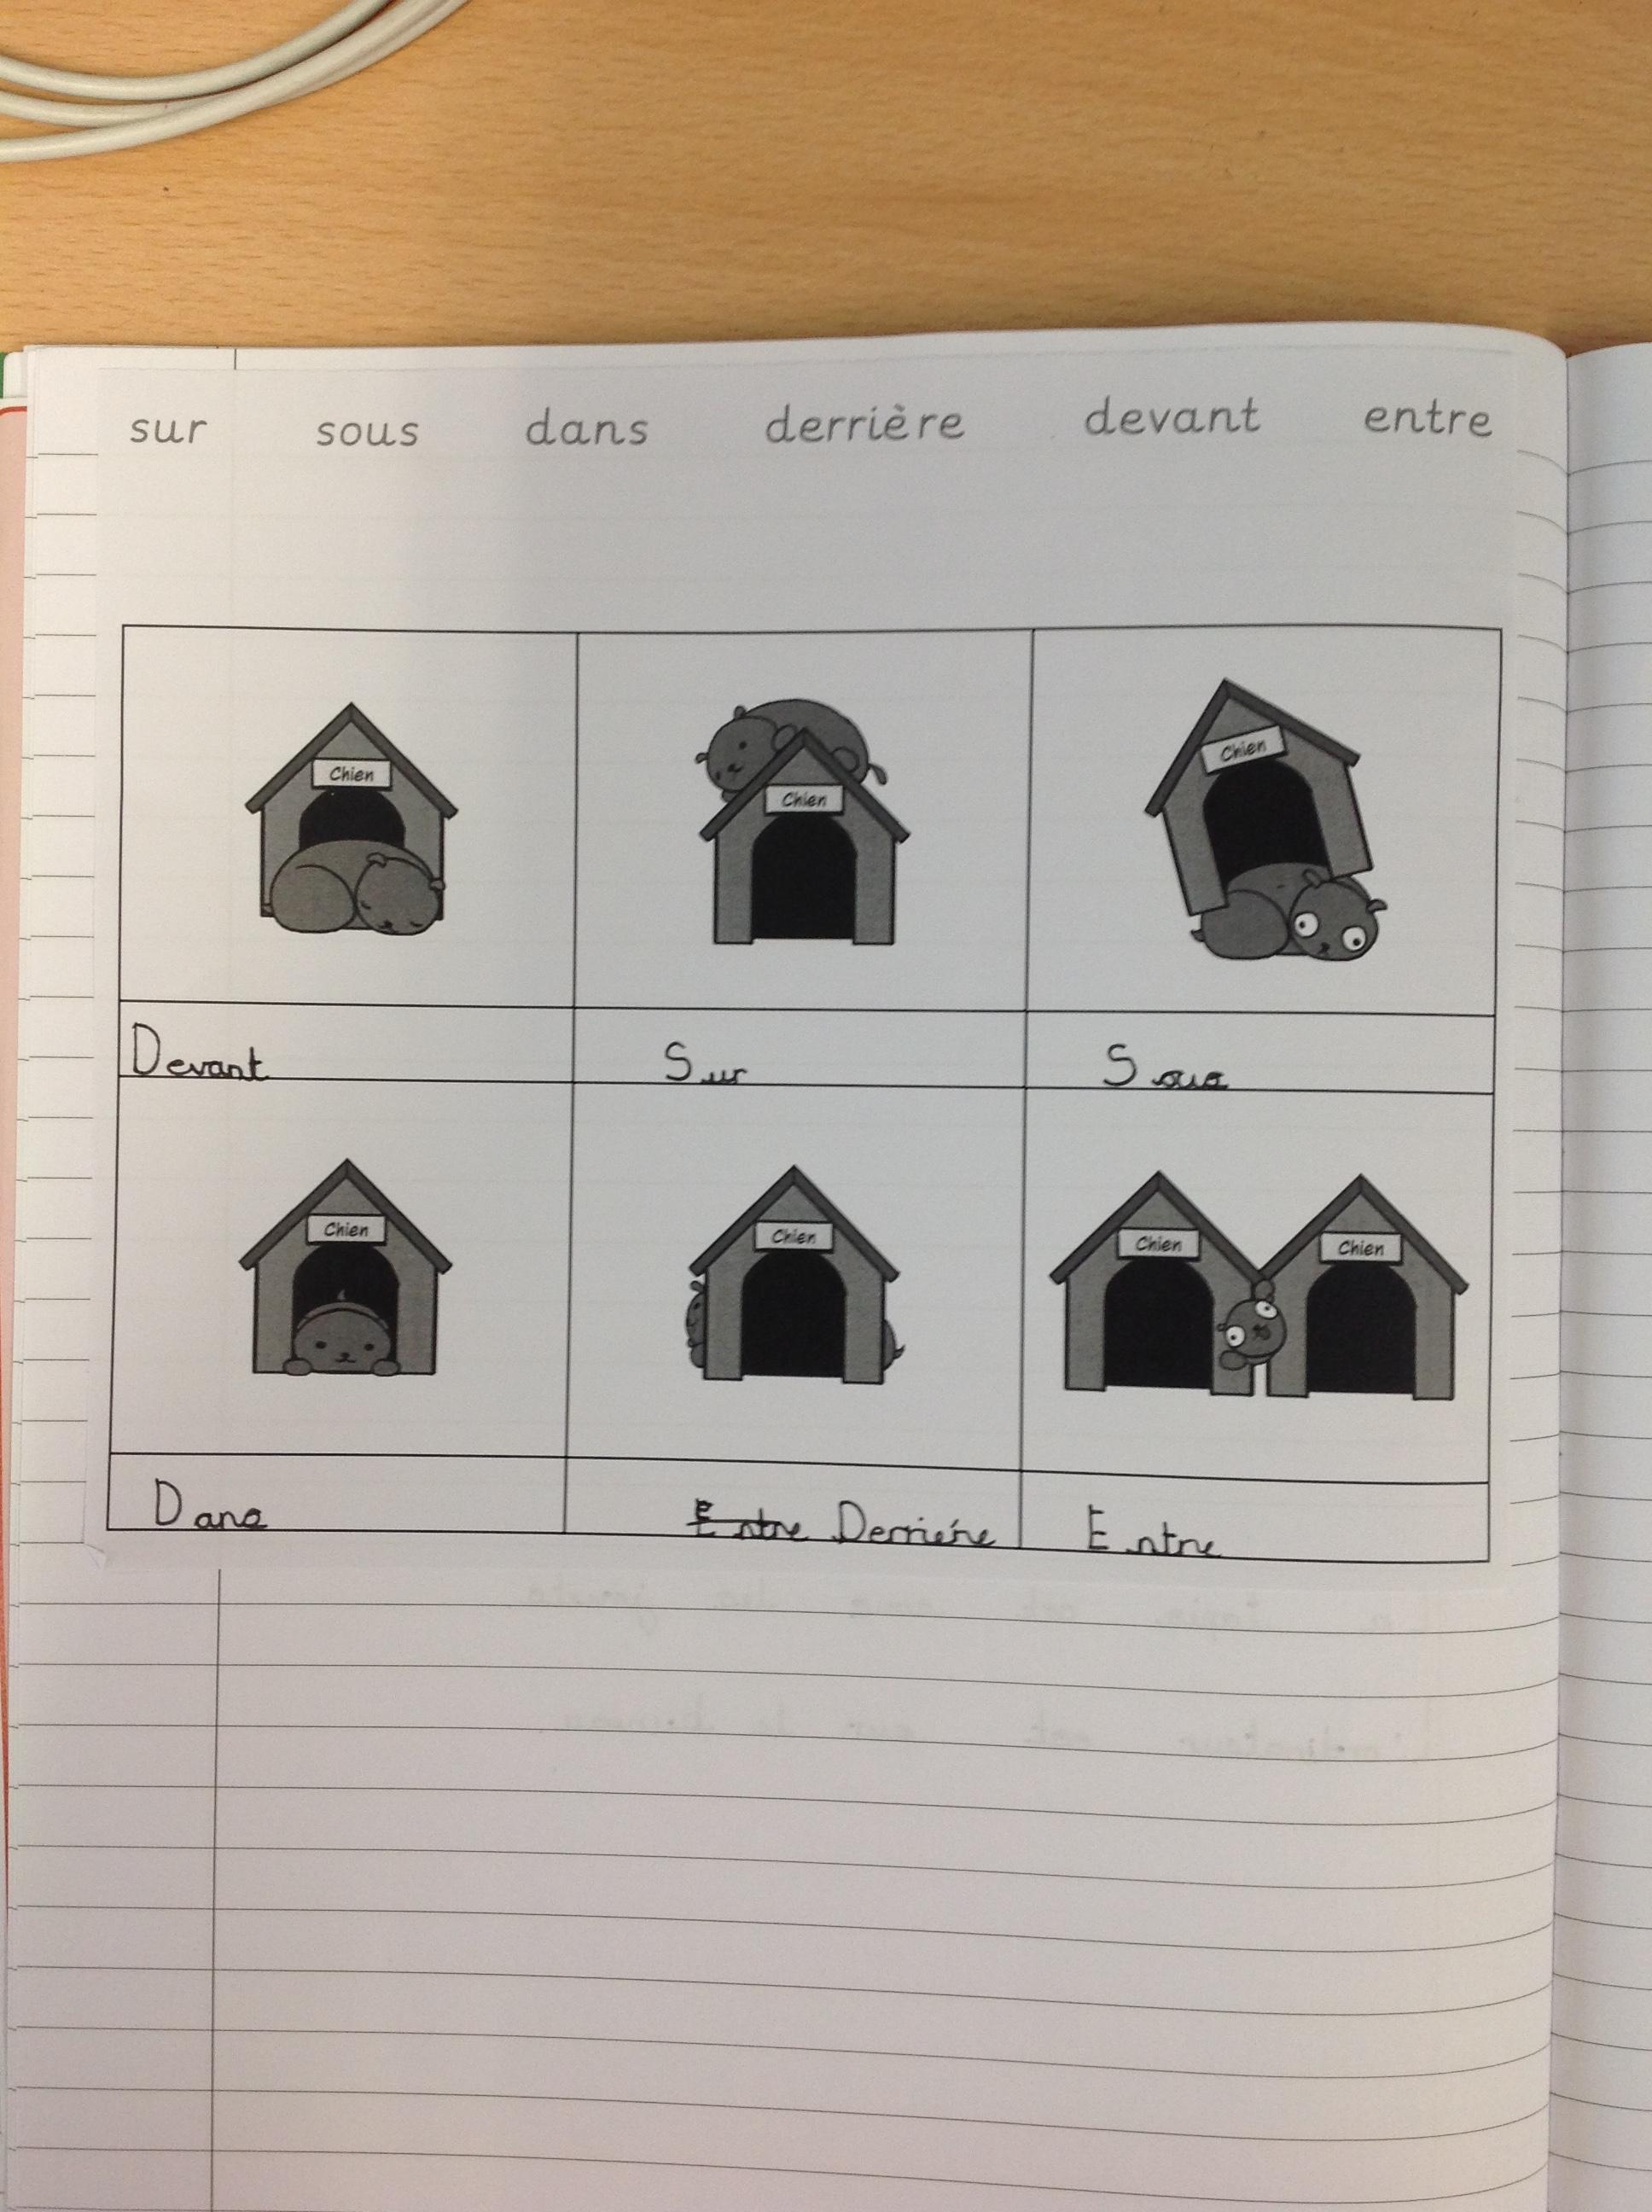 sur sous dans derrière devant entre
Chien Chien Chien
Devant Sur Sous
Chien Chien Chien Chien
Dans Entre Derriére Entre